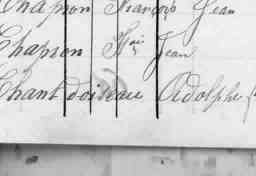 Chapron François Jean
Chapron Jean
Chantdoiseau Adolphe